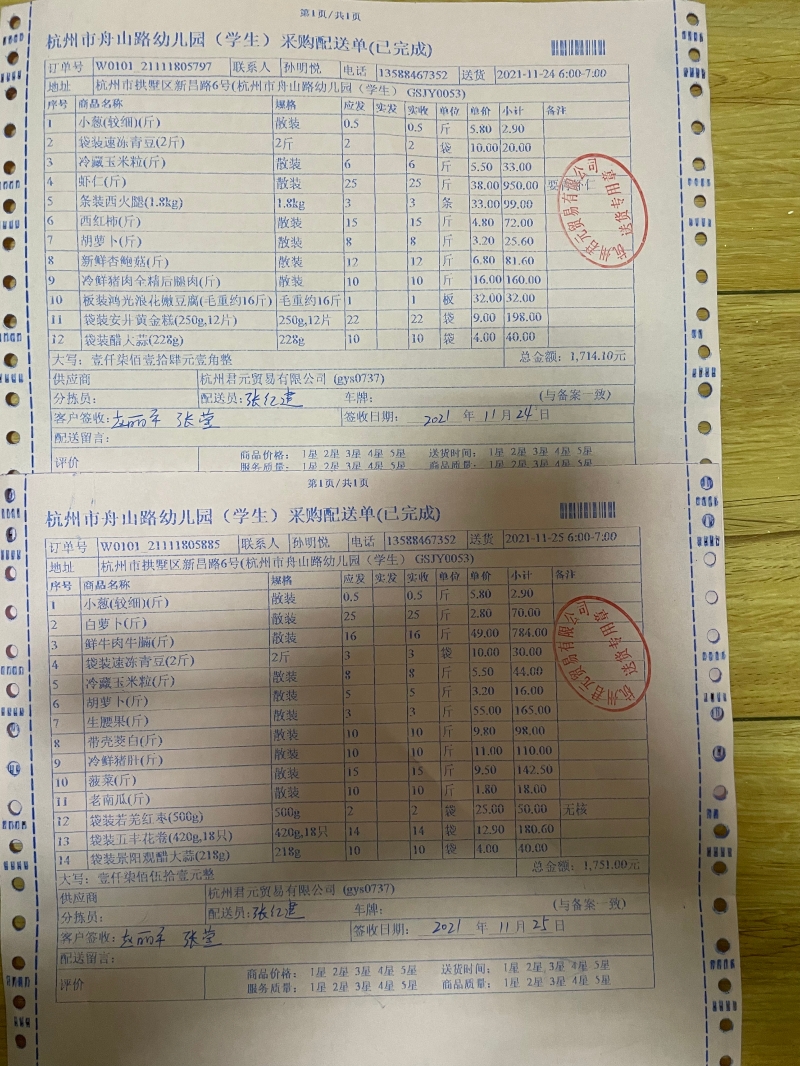 第1页/共1页
杭州市舟山路幼儿园（学生）采购配送单(已完成)
订单号 W0101_21111805797 联系人 孙明悦 电话 13588467352 送货 2021-11-24 6:00-7:00
地址 杭州市拱墅区新昌路6号(杭州市舟山路幼儿园（学生） GSJY0053)
序号 商品名称 规格 应发 实发 实收 单位 单价 小计 备注
1 小葱(较细)(斤) 散装 0.5 0.5 斤 5.80 2.90
2 袋装速冻青豆(2斤) 2斤 2 2 袋 10.00 20.00
3 冷藏玉米粒(斤) 散装 6 6 斤 5.50 33.00
4 虾仁(斤) 散装 25 25 斤 38.00 950.00
5 条装西火腿(1.8kg) 1.8kg 3 3 条 33.00 99.00
6 西红柿(斤) 散装 15 15 斤 4.80 72.00
7 胡萝卜(斤) 散装 8 8 斤 3.20 25.60
8 新鲜杏鲍菇(斤) 散装 12 12 斤 6.80 81.60
9 冷鲜猪肉全精后腿肉(斤) 散装 10 10 斤 16.00 160.00
10 板装鸿光浪花嫩豆腐(毛重约16斤) 毛重约16斤 1 1 板 32.00 32.00
11 袋装安井黄金糕(250g,12片) 250g,12片 22 22 袋 9.00 198.00
12 袋装醋大蒜(228g) 228g 10 10 袋 4.00 40.00
大写: 壹仟柒佰壹拾肆元壹角整 总金额: 1,714.10元
供应商 杭州君元贸易有限公司 (gys0737)
分拣员: 配送员: 张红建 车牌: (与备案一致)
客户签收: 赵丽平 张莹 签收日期: 2021 年 11 月 24 日
配送留言:
评价 商品价格: 1星 2星 3星 4星 5星 送货时间: 1星 2星 3星 4星 5星
服务质量: 1星 2星 3星 4星 5星 商品质量: 1星 2星 3星 4星 5星
杭州君元贸易有限公司
送货专用章
第1页/共1页
杭州市舟山路幼儿园（学生）采购配送单(已完成)
订单号 W0101_21111805885 联系人 孙明悦 电话 13588467352 送货 2021-11-25 6:00-7:00
地址 杭州市拱墅区新昌路6号(杭州市舟山路幼儿园（学生） GSJY0053)
序号 商品名称 规格 应发 实发 实收 单位 单价 小计 备注
1 小葱(较细)(斤) 散装 0.5 0.5 斤 5.80 2.90
2 白萝卜(斤) 散装 25 25 斤 2.80 70.00
3 鲜牛肉牛腩(斤) 散装 16 16 斤 49.00 784.00
4 袋装速冻青豆(2斤) 2斤 3 3 袋 10.00 30.00
5 冷藏玉米粒(斤) 散装 8 8 斤 5.50 44.00
6 胡萝卜(斤) 散装 5 5 斤 3.20 16.00
7 生腰果(斤) 散装 3 3 斤 55.00 165.00
8 带壳茭白(斤) 散装 10 10 斤 9.80 98.00
9 冷鲜猪肝(斤) 散装 10 10 斤 11.00 110.00
10 菠菜(斤) 散装 15 15 斤 9.50 142.50
11 老南瓜(斤) 散装 10 10 斤 1.80 18.00
12 袋装若羌红枣(500g) 500g 2 2 袋 25.00 50.00 无核
13 袋装五丰花卷(420g,18只) 420g,18只 14 14 袋 12.90 180.60
14 袋装景阳观醋大蒜(218g) 218g 10 10 袋 4.00 40.00
大写: 壹仟柒佰伍拾壹元整 总金额: 1,751.00元
供应商 杭州君元贸易有限公司 (gys0737)
分拣员: 配送员: 张红建 车牌: (与备案一致)
客户签收: 赵丽平 张莹 签收日期: 2021 年 11 月 25 日
配送留言:
评价 商品价格: 1星 2星 3星 4星 5星 送货时间: 1星 2星 3星 4星 5星
服务质量: 1星 2星 3星 4星 5星 商品质量: 1星 2星 3星 4星 5星
杭州君元贸易有限公司
送货专用章